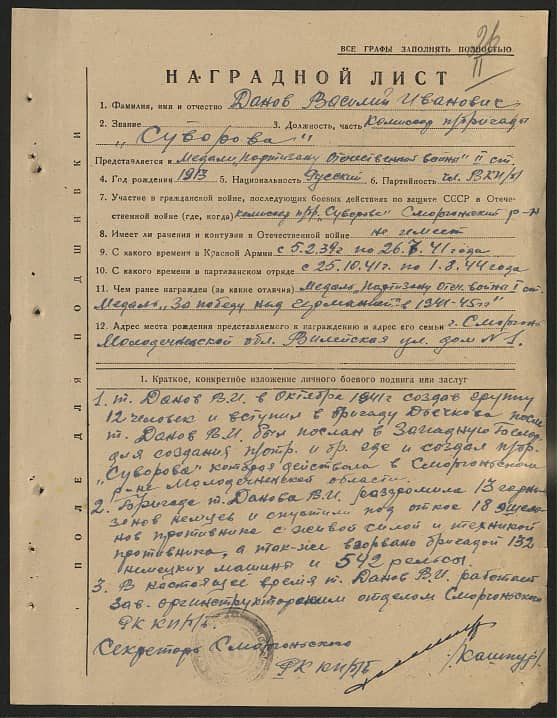 ВСЕ ГРАФЫ ЗАПОЛНЯТЬ ПОЛНОСТЬЮ
26
II
НАГРАДНОЙ ЛИСТ
1. Фамилия, имя и отчество Данов Василий Иванович
2. Звание 3. Должность, часть Комиссар п/бригады
"Суворова"
Представляется к Медали "Партизану Отечественной войны" II ст.
4. Год рождения 1913 5. Национальность Русский 6. Партийность чл. ВКП/б/
7. Участие в гражданской войне, последующих боевых действиях по защите СССР в Отече-
ственной войне (где, когда) комиссар п/бр. "Суворова" Сморгонский р-н
8. Имеет ли ранения и контузии в Отечественной войне не имеет
9. С какого времени в Красной Армии с 5.2.39г по 26.7.41 года
10. С какого времени в партизанском отряде с 25.10.41г. по 1.8.44 года
11. Чем ранее награжден (за какие отличия) Медаль "Партизану Отеч. война" I ст.
Медаль "За победу над германией в 1941-45гг"
12. Адрес места рождения представляемого к награждению и адрес его семьи г. Сморгонь
Молодечненской обл. Вилейская ул. дом № 1.
1. Краткое, конкретное изложение личного боевого подвига или заслуг
1. т. Данов В.И. в Октябре 1941г создав группу
12 человек и вступил в бригаду Дьячкова после
т. Данов В.И. был послан в Западную
для создания п/отр. и бр. где и создал п/бр.
"Суворова" которая действовала в Сморгоньском
р-не Молодечненской области.
2. Бригада т. Данова В.И. разгромила 13 гарни-
зонов немцев и спустили под откос 18 эшело-
нов противника с живой силой и техникой
противника, а так-же взорвано бригадой 132
немецких машины и 542 рельсы.
3. В настоящее время т. Данов В.И. работает
Зав. оргинструкторским отделом Сморгоньского
РК КП/б/Б.
Секретарь Сморгоньского
РК КП/б/Б
ПОЛЕ ДЛЯ ПОДШИВКИ